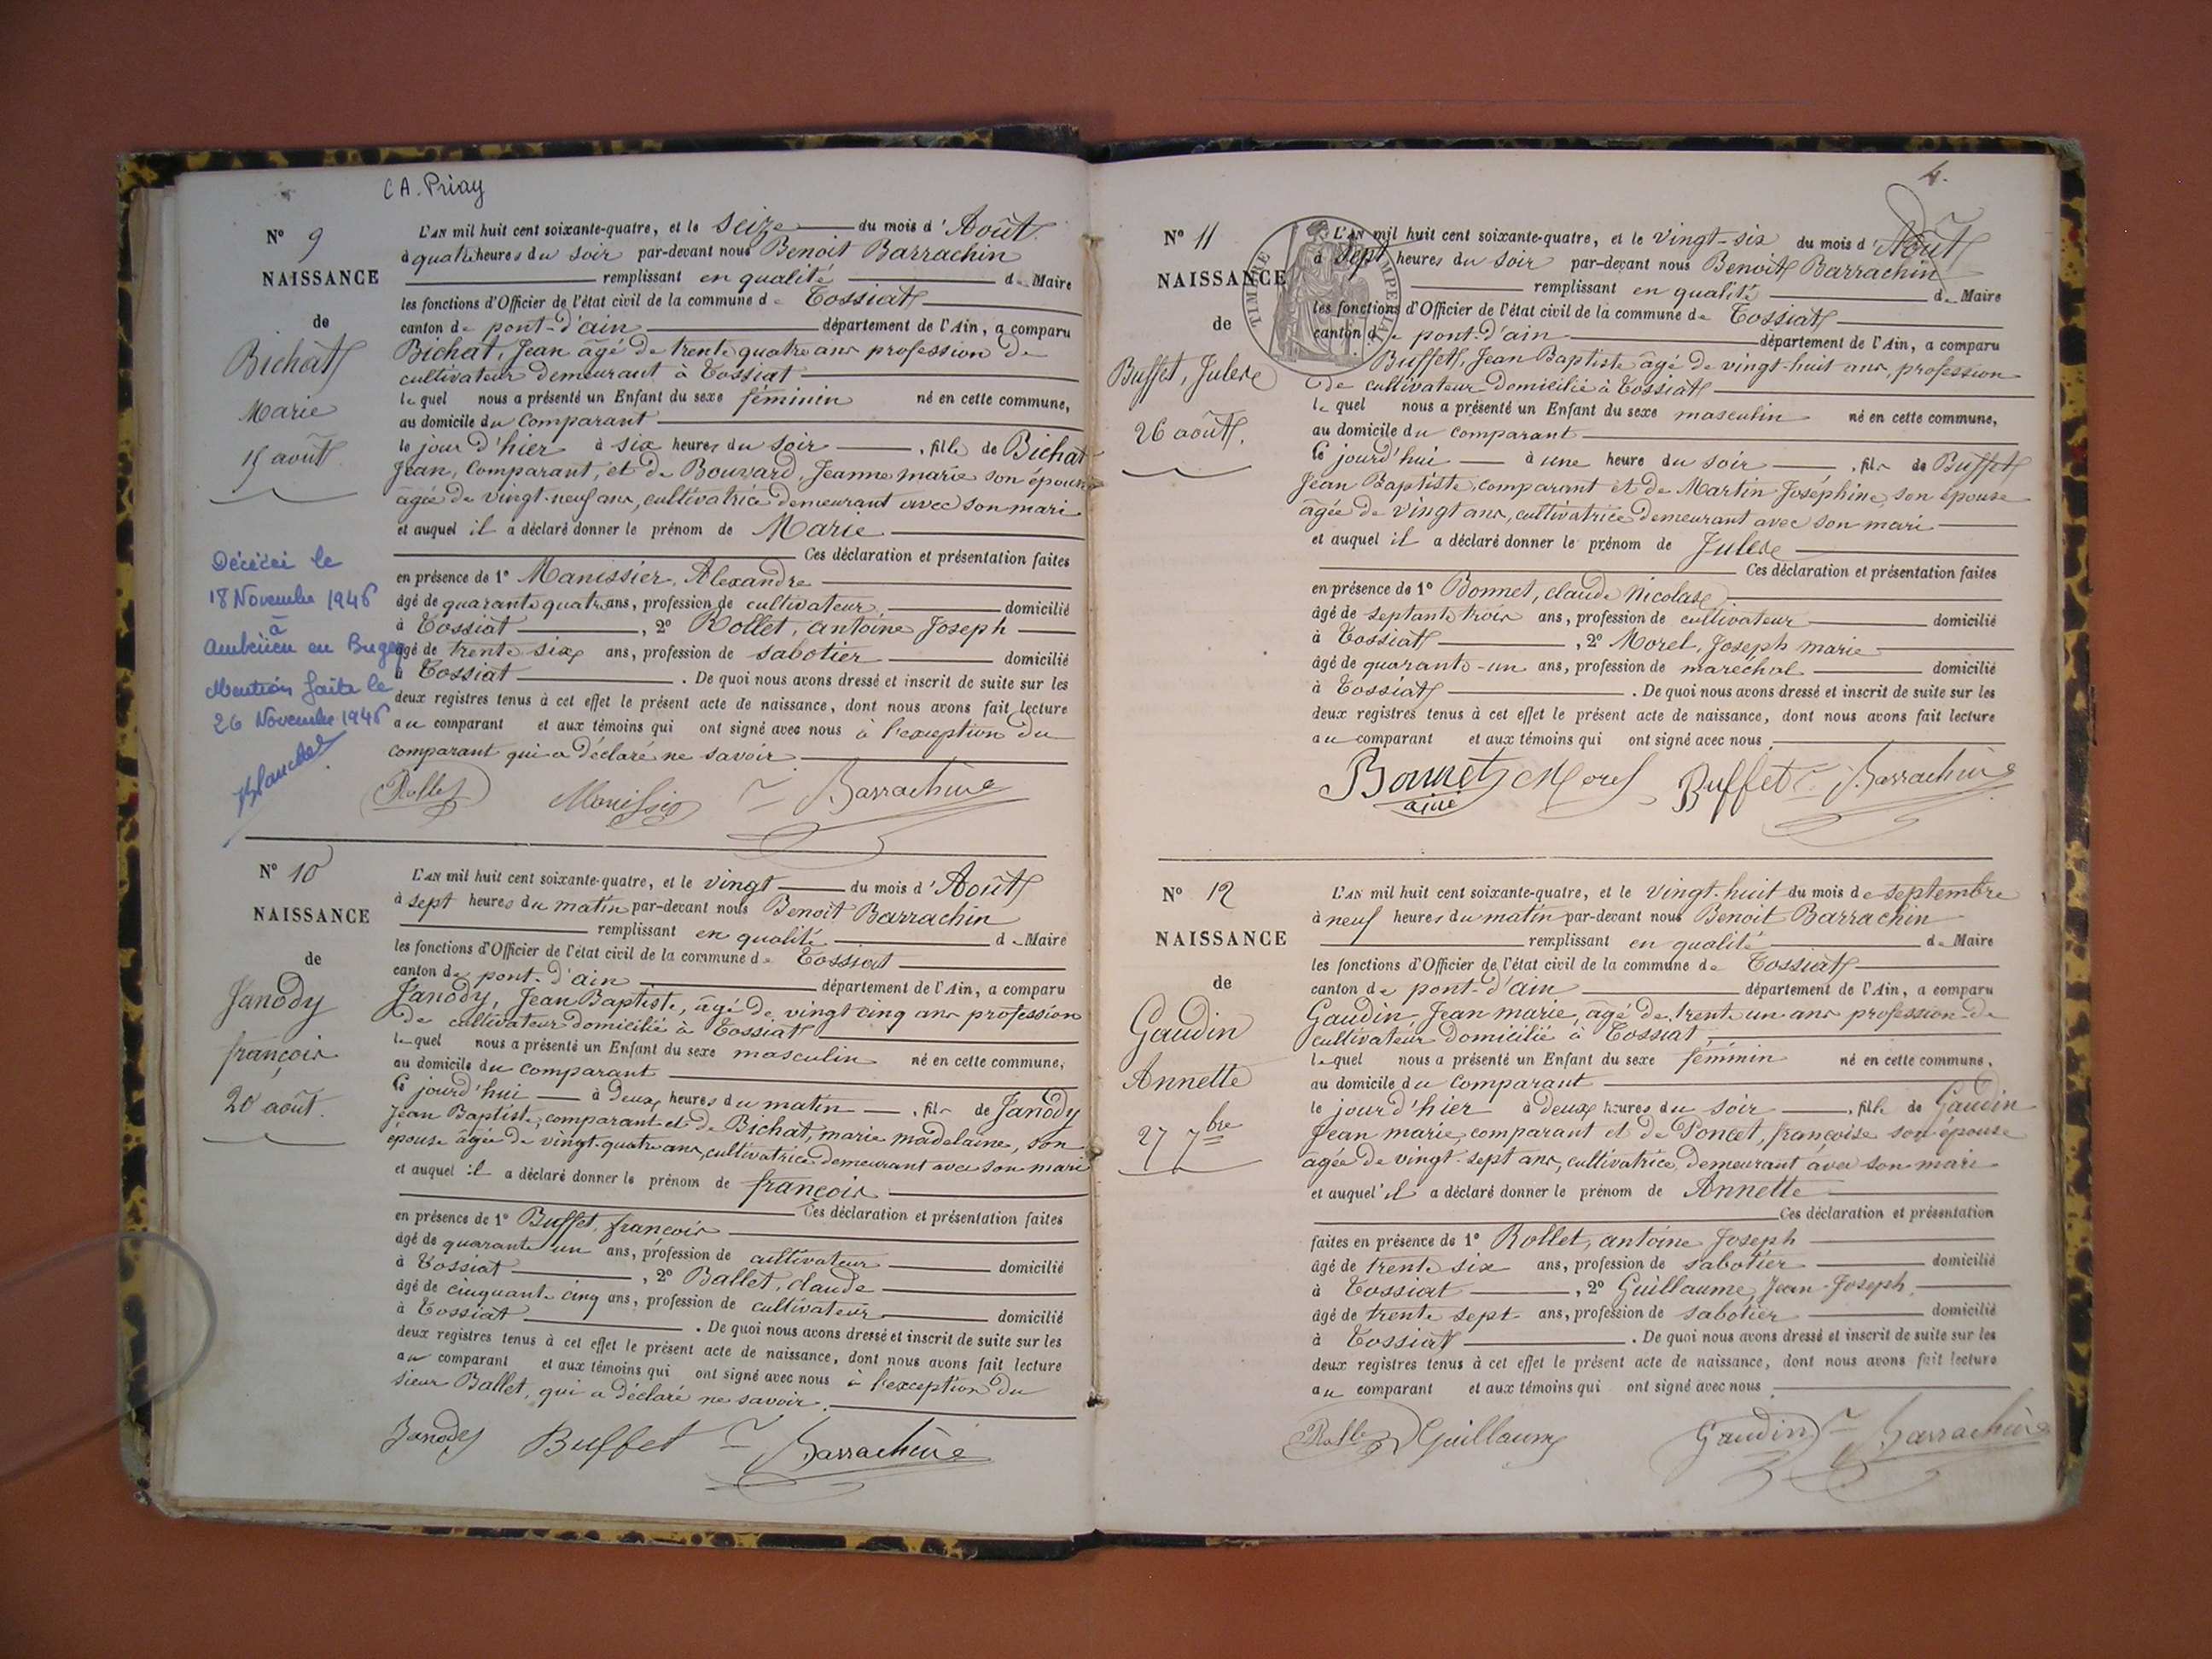 CA. Priay
N° 9
NAISSANCE
de
Bichat
Marie
15 août
Décédée le
18 Novembre 1946
à
Ambérieu en Bugey
Mention faite le
26 Novembre 1946
L'AN mil huit cent soixante-quatre, et le seize du mois d'Août
à quatre heures du soir par-devant nous Benoit Barrachin
remplissant en qualité de Maire
les fonctions d'Officier de l'état civil de la commune de Tossiat
canton de pont-d'ain département de l'Ain, a comparu
Bichat, Jean âgé de trente quatre ans profession de
cultivateur demeurant à Tossiat
lequel nous a présenté un Enfant du sexe féminin né en cette commune,
au domicile du comparant
le jour d'hier à six heures du soir , fille de Bichat
Jean, comparant, et de Bouvard, Jeanne marie son épouse
âgée de vingt-neuf ans, cultivatrice demeurant avec son mari
et auquel il a déclaré donner le prénom de Marie
Ces déclaration et présentation faites
en présence de 1° Manissier, Alexandre
âgé de quarante quatre ans, profession de cultivateur domicilié
à Tossiat , 2° Rollet, antoine Joseph
âgé de trente six ans, profession de sabotier domicilié
à Tossiat . De quoi nous avons dressé et inscrit de suite sur les
deux registres tenus à cet effet le présent acte de naissance, dont nous avons fait lecture
au comparant et aux témoins qui ont signé avec nous à l'exception du
comparant qui a déclaré ne savoir
Rollet Manissier Barrachin
N° 10
NAISSANCE
de
Janody
françois
20 août.
L'AN mil huit cent soixante-quatre, et le vingt du mois d'Août
à sept heures du matin par-devant nous Benoit Barrachin
remplissant en qualité de Maire
les fonctions d'Officier de l'état civil de la commune de Tossiat
canton de pont-d'ain département de l'Ain, a comparu
Janody, Jean Baptiste, âgé de vingt cinq ans profession
de cultivateur domicilié à Tossiat
lequel nous a présenté un Enfant du sexe masculin né en cette commune,
au domicile du comparant
ce jourd'hui à deux heures du matin , fils de Janody
Jean Baptiste, comparant et de Bichat, marie madelaine, son
épouse âgée de vingt-quatre ans, cultivatrice demeurant avec son mari
et auquel il a déclaré donner le prénom de françois
Ces déclaration et présentation faites
en présence de 1° Buffet, françois
âgé de quarante un ans, profession de cultivateur domicilié
à Tossiat , 2° Ballet, claude
âgé de cinquante cinq ans, profession de cultivateur domicilié
à Tossiat . De quoi nous avons dressé et inscrit de suite sur les
deux registres tenus à cet effet le présent acte de naissance, dont nous avons fait lecture
au comparant et aux témoins qui ont signé avec nous à l'exception du
sieur Ballet, qui a déclaré ne savoir.
Janody Buffet Barrachin
4.
N° 11
NAISSANCE
de
Buffet, Jules
26 août.
TIMBRE IMPERIAL
L'AN mil huit cent soixante-quatre, et le vingt-six du mois d'Août
à sept heures du soir par-devant nous Benoit Barrachin
remplissant en qualité de Maire
les fonctions d'Officier de l'état civil de la commune de Tossiat
canton de pont-d'ain département de l'Ain, a comparu
Buffet, Jean Baptiste âgé de vingt-huit ans, profession
de cultivateur domicilié à Tossiat
lequel nous a présenté un Enfant du sexe masculin né en cette commune,
au domicile du comparant
ce jourd'hui à une heure du soir , fils de Buffet
Jean Baptiste, comparant et de Martin Joséphine, son épouse
âgée de vingt ans, cultivatrice demeurant avec son mari
et auquel il a déclaré donner le prénom de Jules
Ces déclaration et présentation faites
en présence de 1° Bonnet, claude Nicolas
âgé de septante trois ans, profession de cultivateur domicilié
à Tossiat , 2° Morel, Joseph marie
âgé de quarante-un ans, profession de maréchal domicilié
à Tossiat . De quoi nous avons dressé et inscrit de suite sur les
deux registres tenus à cet effet le présent acte de naissance, dont nous avons fait lecture
au comparant et aux témoins qui ont signé avec nous.
Bonnet Morel Buffet Barrachin
ainé
N° 12
NAISSANCE
de
Gaudin
Annette
27 7bre
L'AN mil huit cent soixante-quatre, et le vingt-huit du mois de septembre
à neuf heures du matin par-devant nous Benoit Barrachin
remplissant en qualité de Maire
les fonctions d'Officier de l'état civil de la commune de Tossiat
canton de pont-d'ain département de l'Ain, a comparu
Gaudin Jean marie, âgé de trente un ans profession de
cultivateur domicilié à Tossiat,
lequel nous a présenté un Enfant du sexe féminin né en cette commune,
au domicile du comparant
le jour d'hier à deux heures du soir , fille de Gaudin
Jean marie, comparant et de Poncet, françoise son épouse
âgée de vingt-sept ans, cultivatrice, demeurant avec son mari
et auquel il a déclaré donner le prénom de Annette
Ces déclaration et présentation
faites en présence de 1° Rollet, antoine Joseph
âgé de trente six ans, profession de sabotier domicilié
à Tossiat , 2° Guillaume, Jean-Joseph,
âgé de trente sept ans, profession de sabotier domicilié
à Tossiat . De quoi nous avons dressé et inscrit de suite sur les
deux registres tenus à cet effet le présent acte de naissance, dont nous avons fait lecture
au comparant et aux témoins qui ont signé avec nous.
Rollet Guillaume Gaudin Barrachin